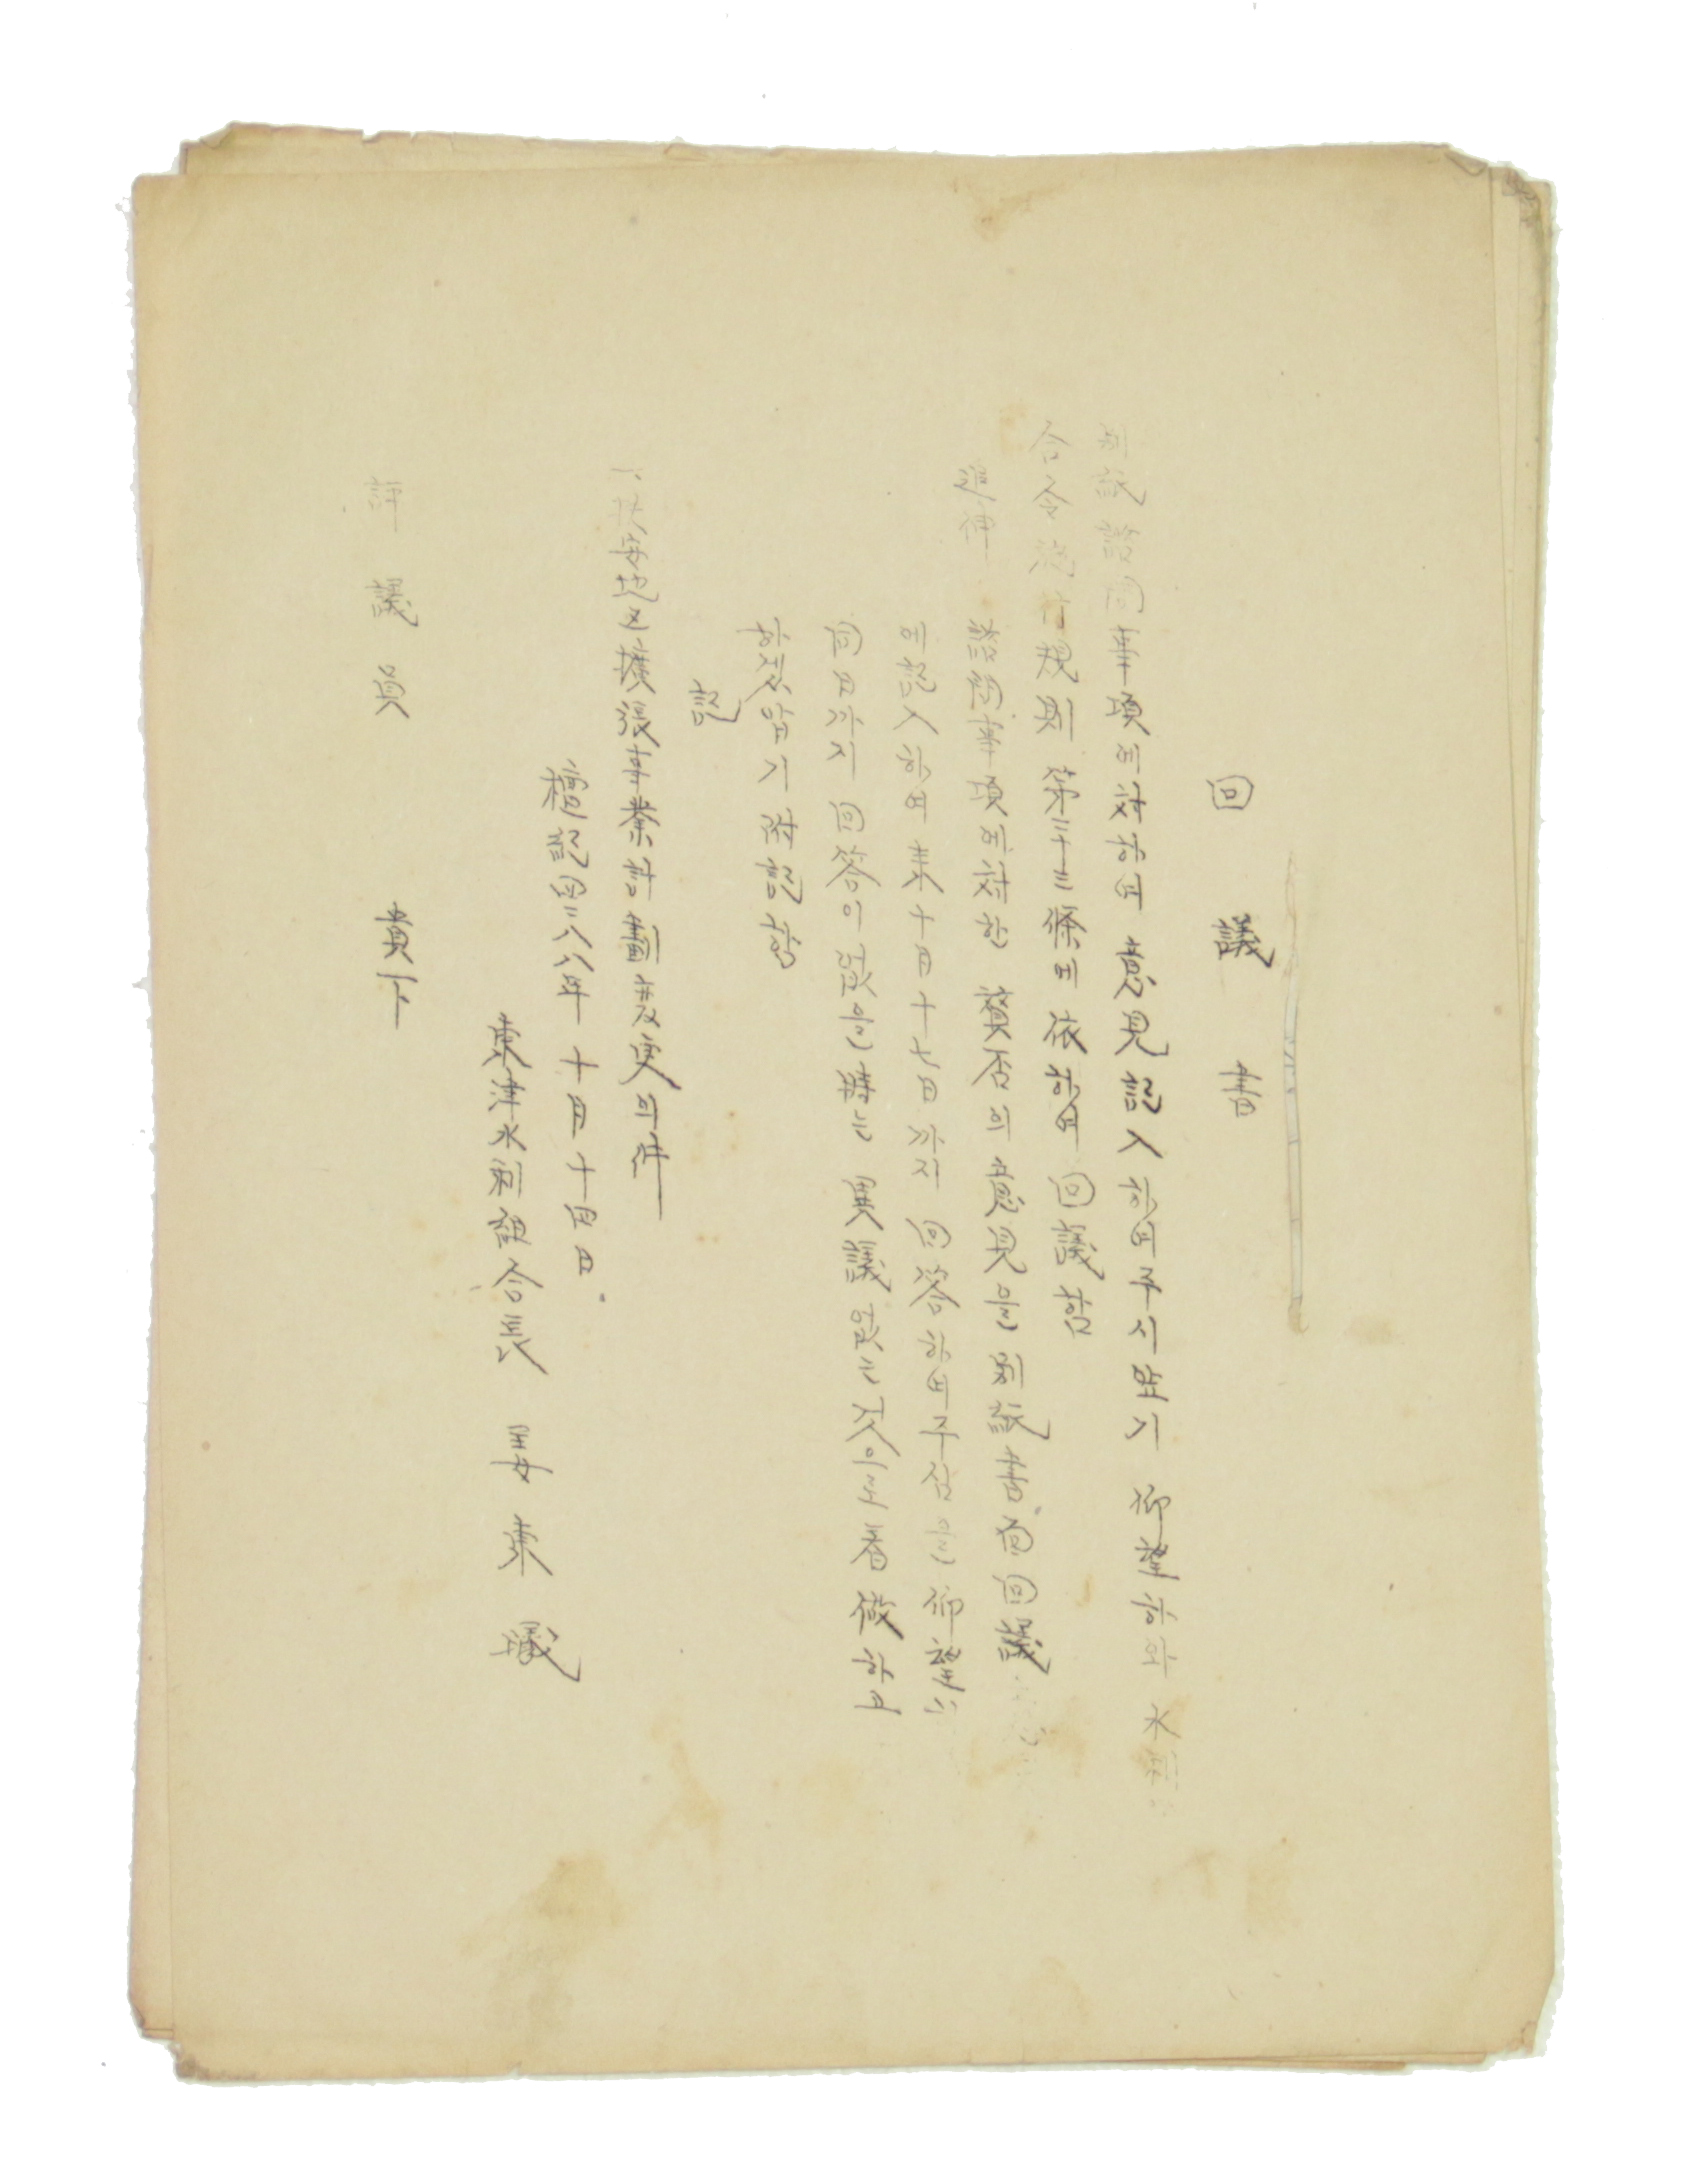 回議書
別紙諮問事項에対하여 意見記入하여주시압기 仰望하와 水利組
合令施行規則 第三十三條에 依하여 回議함
追伸
諮問事項에対한 贊否의 意見을 別紙書面回議
에記入하여 来十月十七日까지 回答하여주심을 仰望하
同日까지 回答이 없을時는 異議없는것으로看做하고
하겠압기 附記함
記
扶安地区擴張事業計劃変更의件
檀紀四二八八年 十月十四日
東津水利組合長 姜東曦
評議員 貴下